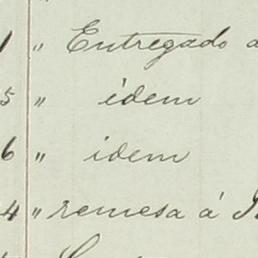 1 " Entregado a
5 " idem
6 " idem
4 " remesa á